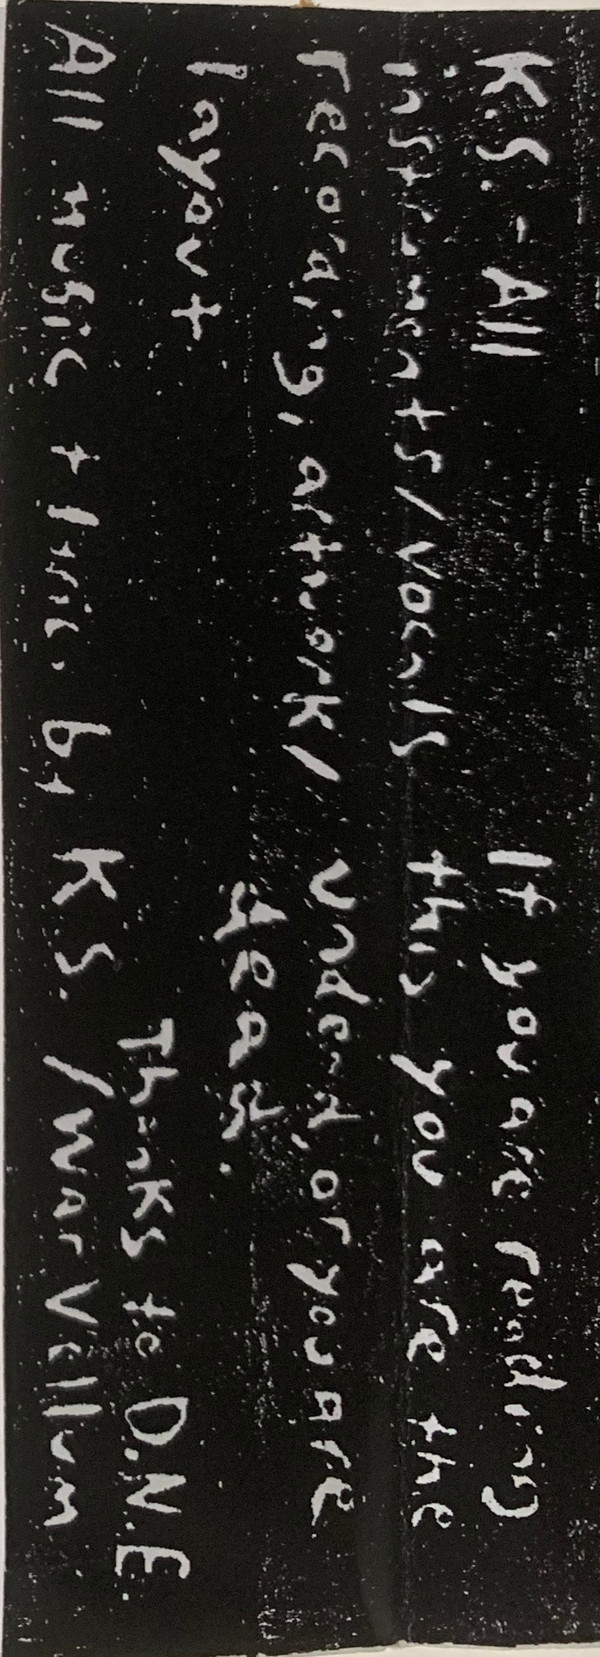 K.S. - All
instruments/vocals
recording, artwork/
layout
If you are reading
this you are the
undead, or you are
dead.
Thanks to D.N.E.
All music + lyric. by K.S. / War Vellum